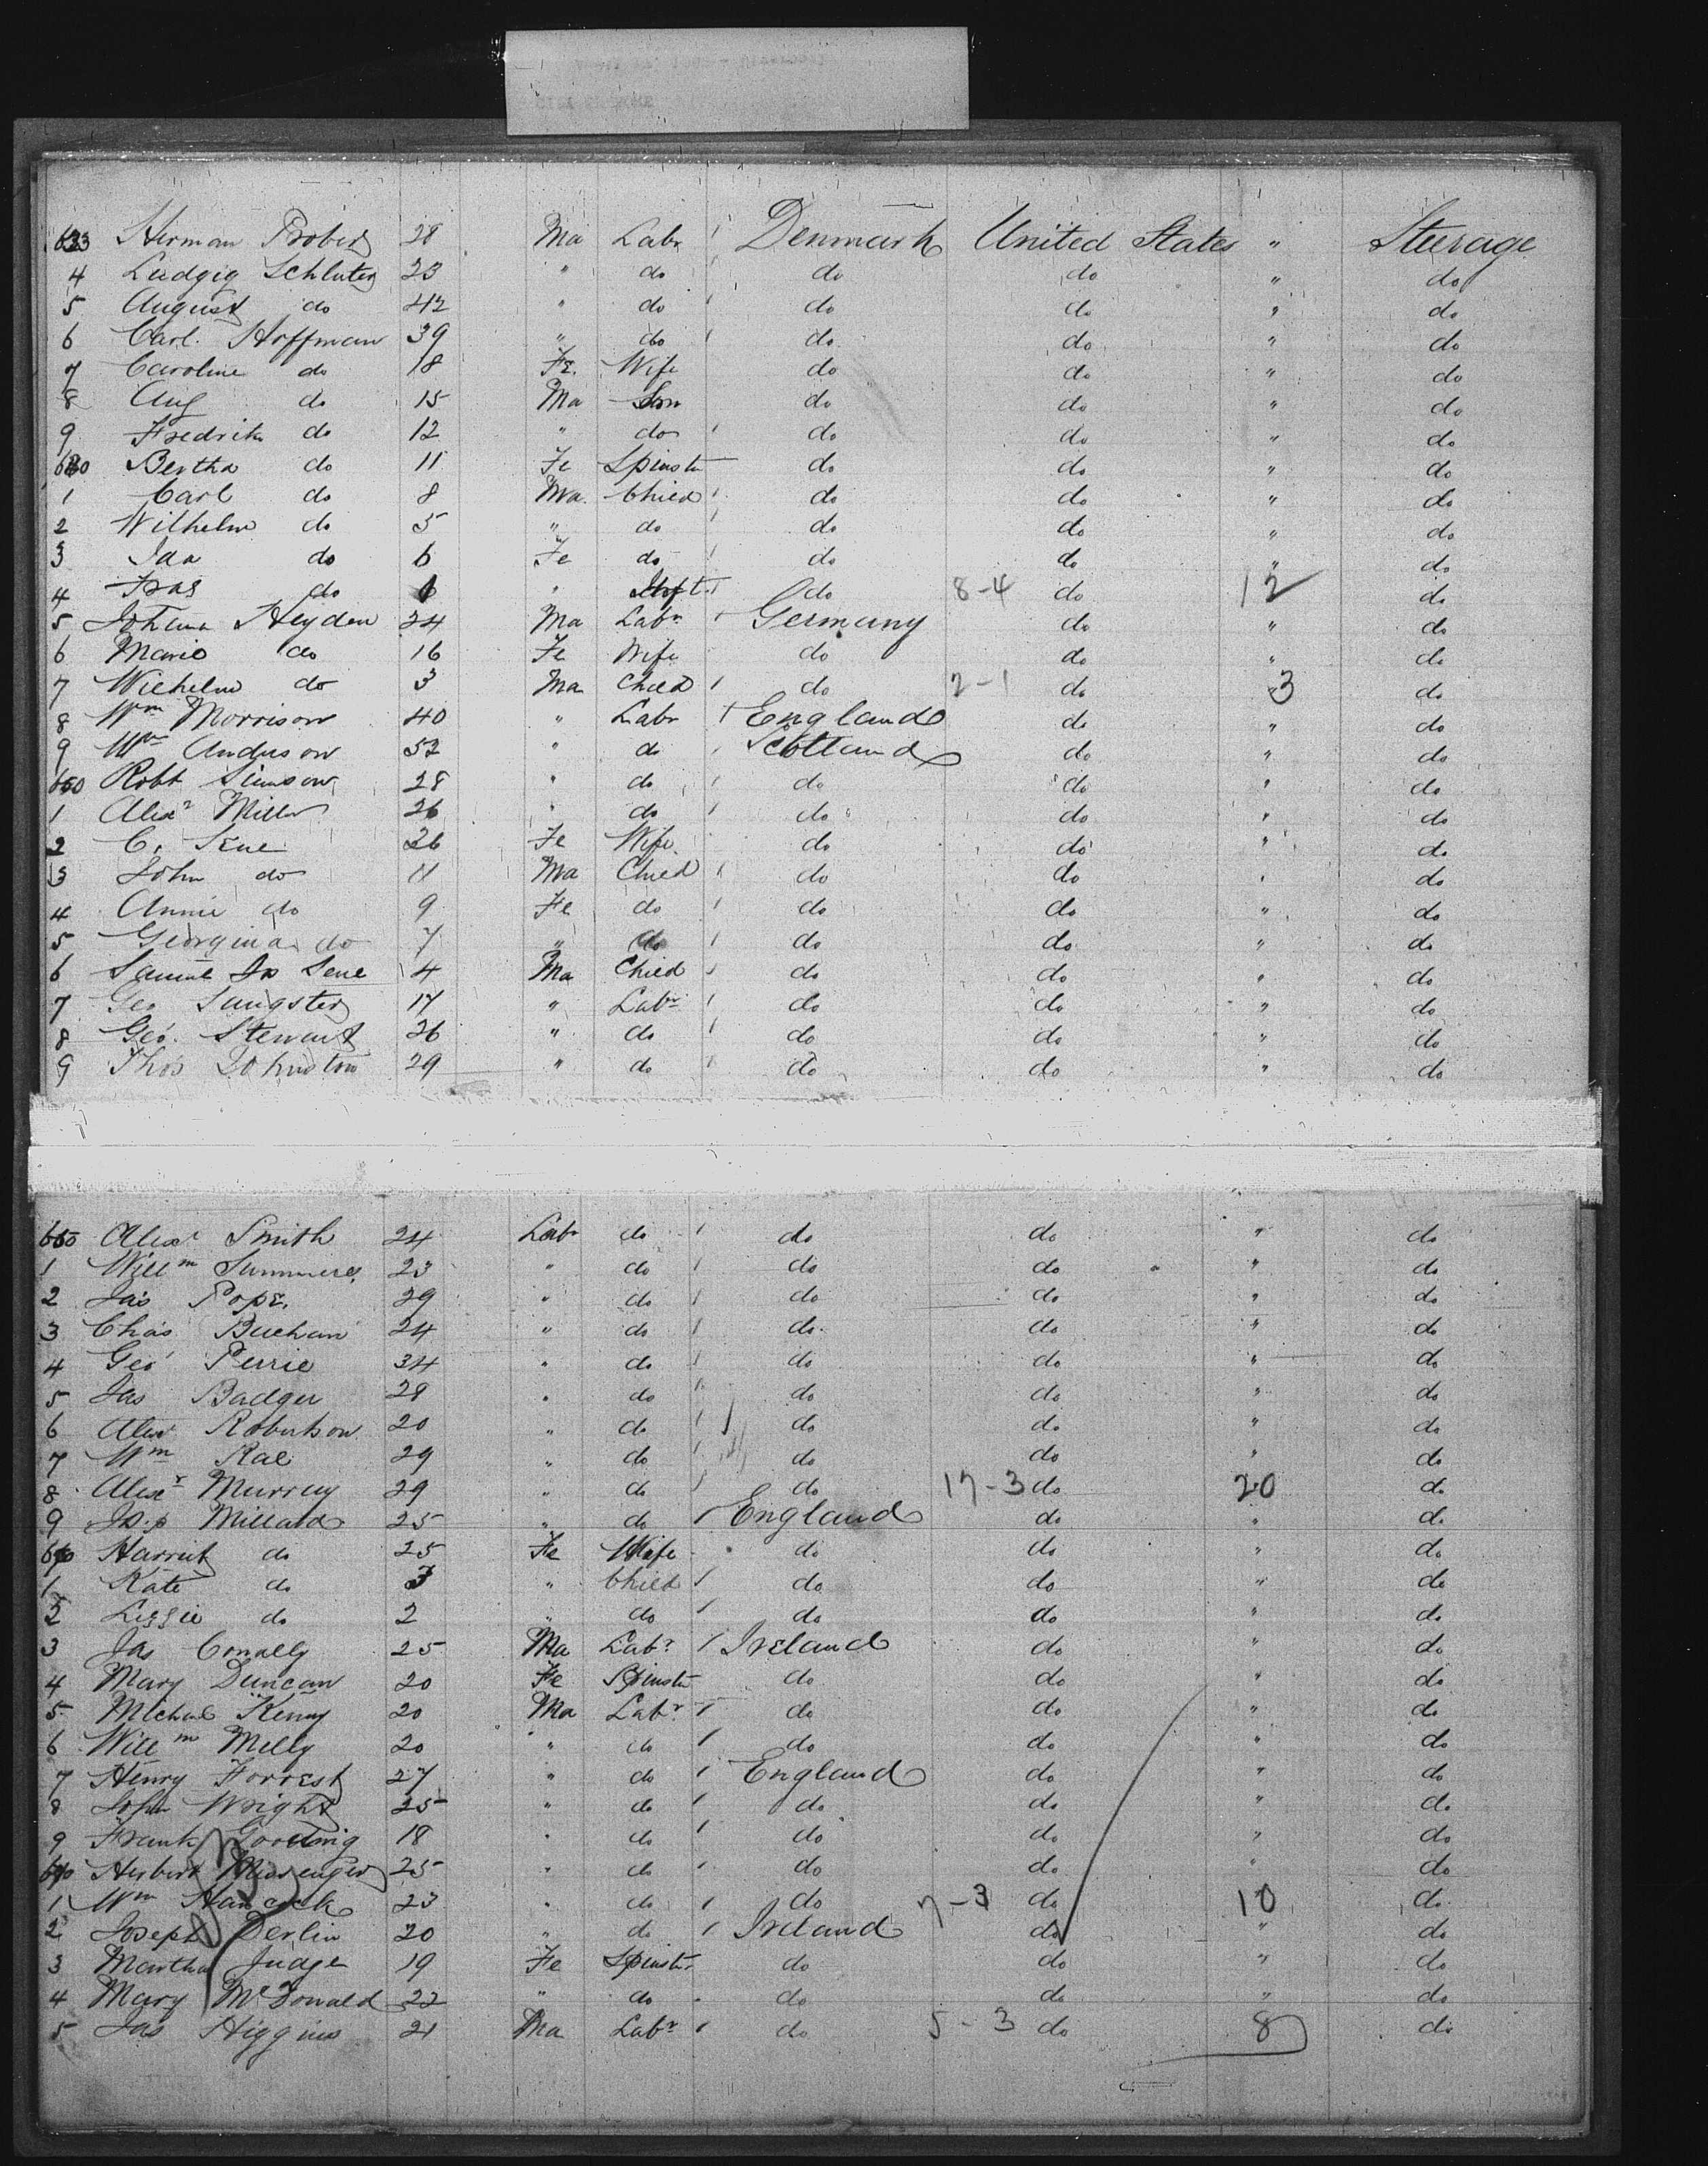 633 Herman Probert 28 Ma Labr Denmark United States " Steerage
4 Ludgig Schluter 23 " do do do " do
5 August do 42 " do do do " do
6 Carl. Hoffman 39 " do do do " do
7 Caroline do 18 Fe. Wife do do " do
8 Aug do 15 Ma Son do do " do
9 Fredrik do 12 " do do do " do
Bertha do 11 Fe Spinstr do do " do
1 Carl do 8 Ma. Child do do " do
2 Wilhelm do 5 " do do do " do
3 Ida do 6 Fe do do do " do
4 do " do 8-4 do 12 do
5 Johann Heyden 24 Ma Labr Germany do " do
6 Marie do 16 Fe Wife do do " do
7 Wilhelm do 3 Ma Child do 2-1 do 3 do
8 Wm Morrison 40 " Labr England do " do
9 Wm Anderson 52 " do Scotland do " do
650 Robt Simson 28 " do do do " do
1 Alexr Miller 26 " do do do " do
2 C. Sene 26 Fe Wife do do " do
3 John do 11 Ma Child do do " do
4 Annie do 9 Fe do do do " do
5 Georgina do 7 " do do do " do
6 Sene 4 Ma Child do do " do
7 Geo Sangster 17 " Labr do do " do
8 Geo. Stewart 26 " do do do " do
9 Thos Johnston 29 " do do do " do
660 Alexr Smith 24 Labr do do do " do
1 Willm Summers 23 " do do do " do
2 Jas Pope. 29 " do do do " do
3 Chas Buchan 24 " do do do " do
4 Geo Perrie 34 " do do do " do
5 Jas Badger 28 " do do do " do
6 Alexr Robertson 20 " do do do " do
7 Wm Rae 29 " do do do " do
8 Alexr Murray 29 " do do 17-3 do 20 do
9 Millard 25 " do England do " do
670 Harriet do 25 Fe Wife do do " do
1 Kate do 3 " Child do do " do
2 Lizzie do 2 " do do do " do
3 Jas Conally 25 Ma Labr Ireland do " do
4 Mary Duncan 20 Fe Spinstr do do " do
5 Michael Kenny 20 Ma Labr do do " do
6 Willm Melly 20 " do do do " do
7 Henry Forrest 27 " do England do " do
8 John Wright 25 " do do do " do
9 Frank Gooding 18 " do do do " do
680 Herbert Messenger 25 " do do do " do
1 Wm Hancock 23 " do do 7-3 do 10 do
2 Joseph Derlin 20 " do Ireland do " do
3 Martha Judge 19 Fe Spinstr do do " do
4 Mary McDonald 22 " do do do " do
5 Jas Higgins 21 Ma Labr do 5-3 do 8 do